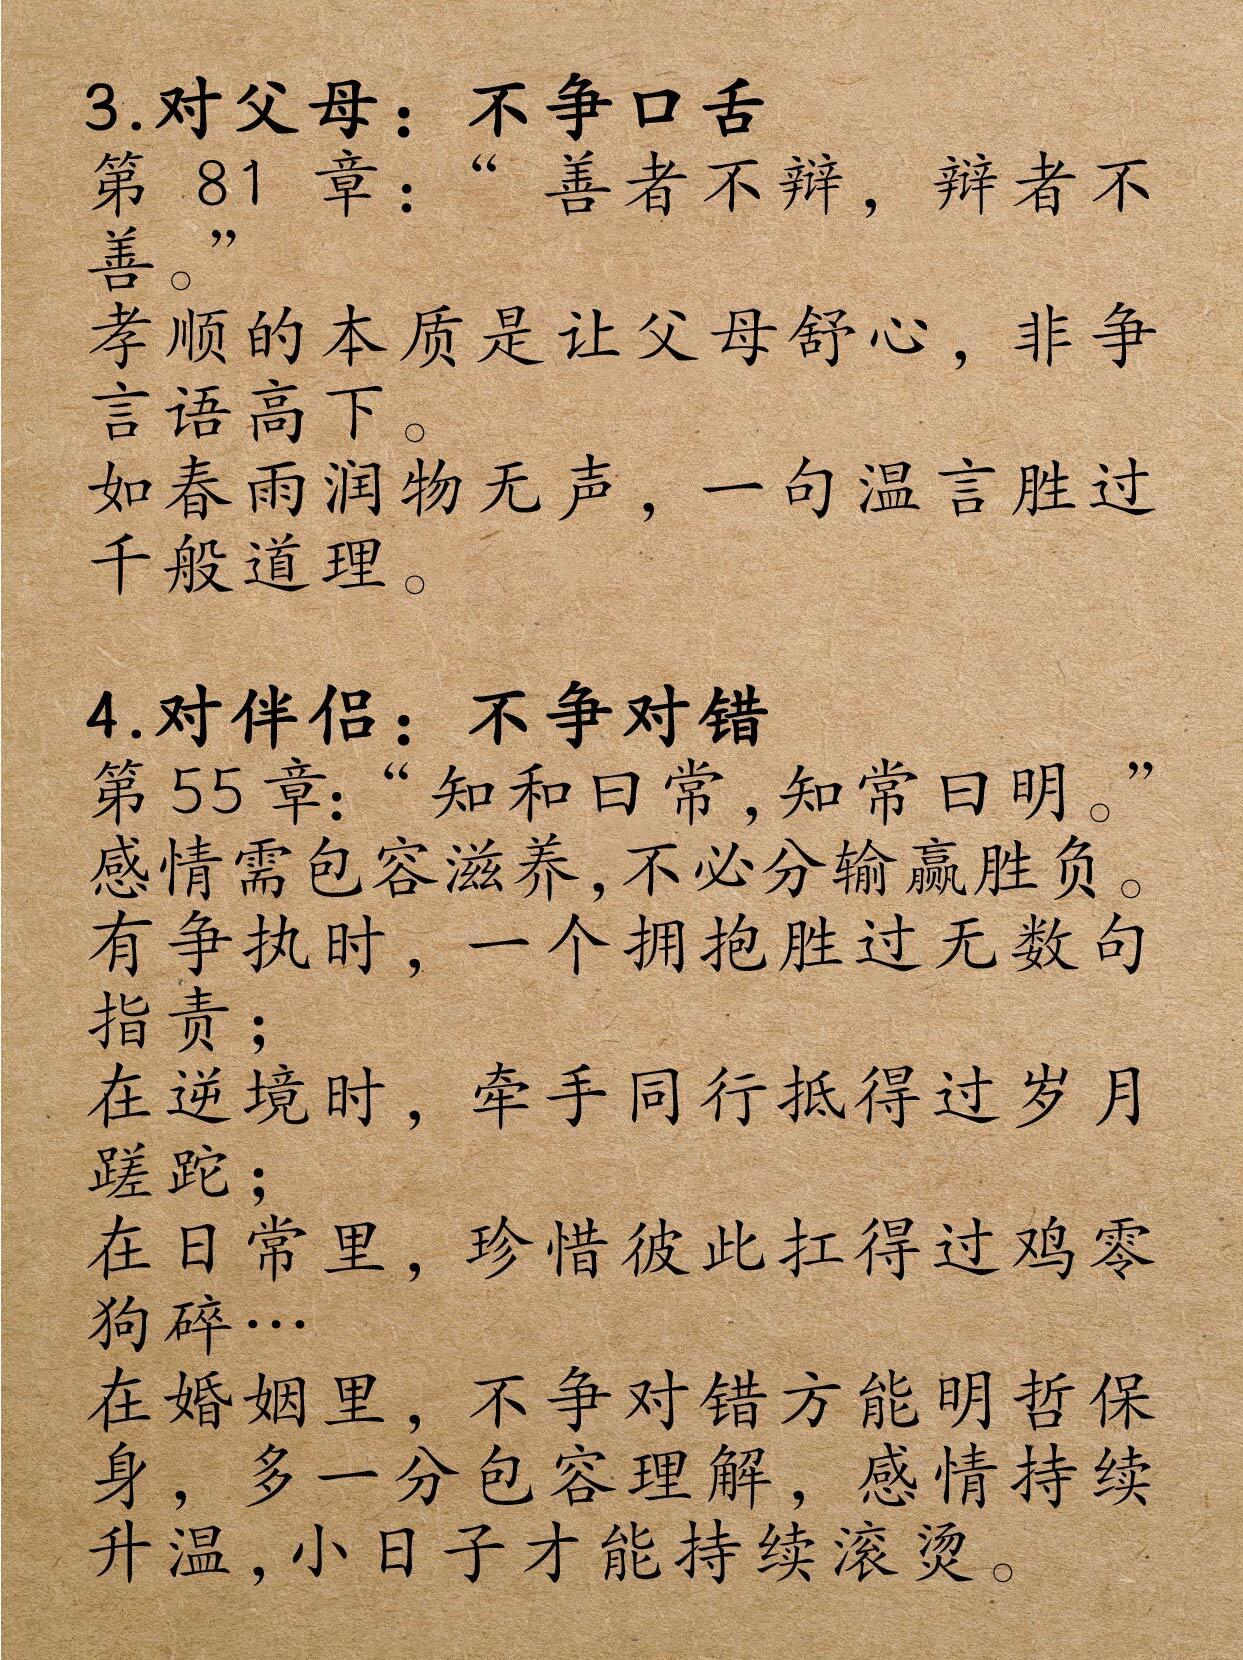 3.对父母：不争口舌
第 81 章：“善者不辩，辩者不
善。”
孝顺的本质是让父母舒心，非争
言语高下。
如春雨润物无声，一句温言胜过
千般道理。
4.对伴侣：不争对错
第55章：“知和曰常，知常曰明。”
感情需包容滋养，不必分输赢胜负。
有争执时，一个拥抱胜过无数句
指责；
在逆境时，牵手同行抵得过岁月
蹉跎；
在日常里，珍惜彼此扛得过鸡零
狗碎…
在婚姻里，不争对错方能明哲保
身，多一分包容理解，感情持续
升温，小日子才能持续滚烫。